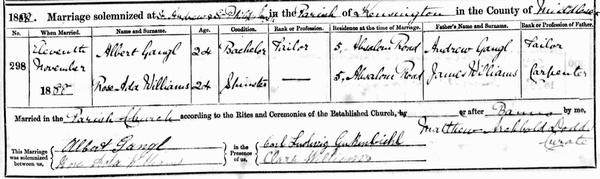 188 Marriage solemnized at St Andrew & St Philip in the Parish of Kensington in the County of Middlesex
No. When Married. Name and Surname. Age. Condition. Rank or Profession. Residence at the time of Marriage. Father's Name and Surname. Rank or Profession of Father.
298 Eleventh November 188 Albert Gangl 24 Bachelor Tailor 5, Absalom Road Andrew Gangl Tailor
Rose Ada Williams 24 Spinster — 5, Absalom Road James Williams Carpenter
Married in the Parish Church according to the Rites and Ceremonies of the Established Church, by or after Banns by me,
Matthew Archbold Dodd
Curate
This Marriage was solemnized between us, Albert Gangl in the Presence of us, Carl Ludwig
Rose Ada Williams Clara Williams